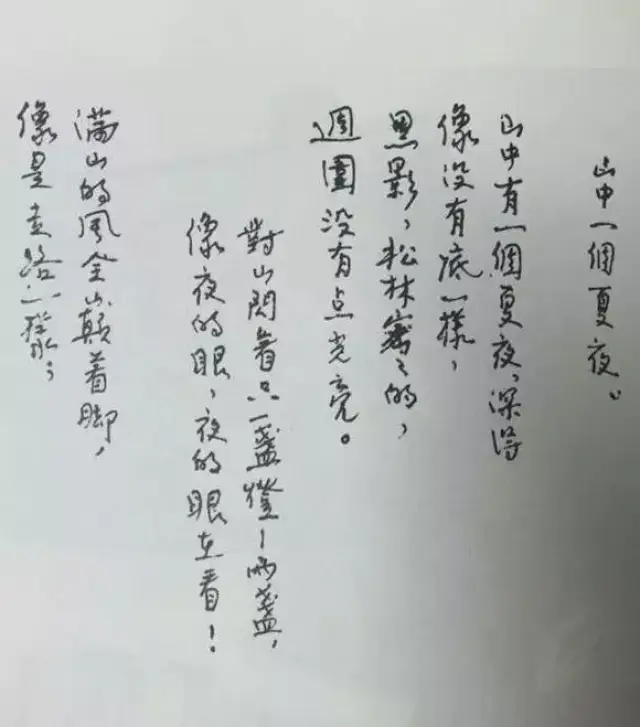 山中一個夏夜。
山中有一個夏夜，深得
像没有底一樣，
黑影，松林密々的，
週圍没有点光亮。
對山閃着只一盞燈—两盞，
像夜的眼，夜的眼在看！
满山的风全蹑着脚，
像是走路一樣，